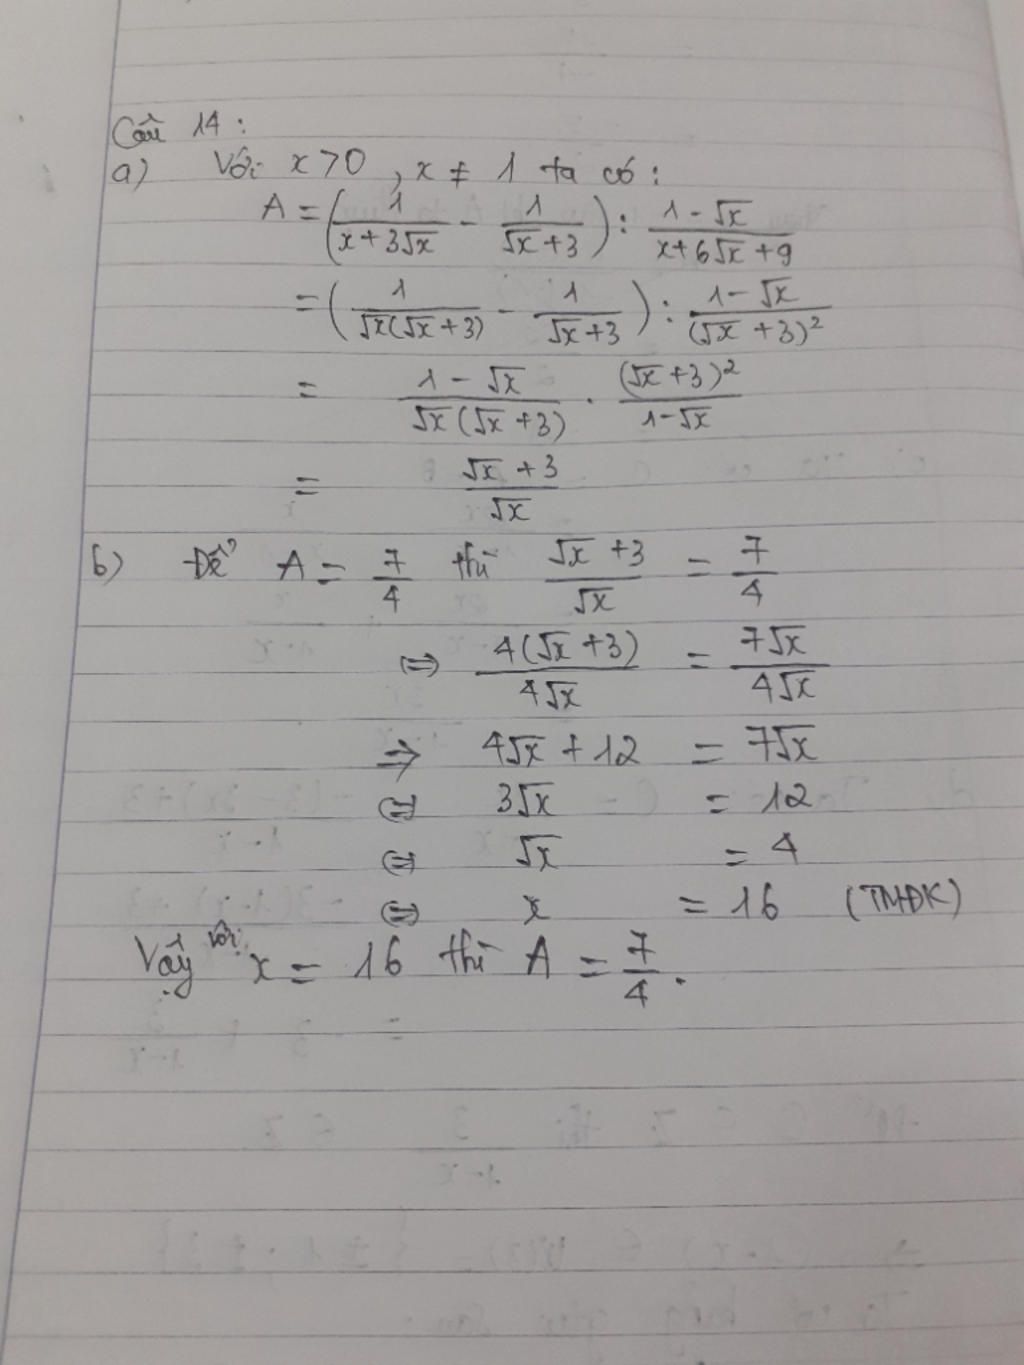 Câu 14 :
a) Với x > 0 , x ≠ 1 ta có :
A = (1/(x + 3√x) - 1/(√x + 3)) : (1 - √x)/(x + 6√x + 9)
= (1/(√x(√x + 3)) - 1/(√x + 3)) : (1 - √x)/(√x + 3)²
= (1 - √x)/(√x(√x + 3)) . (√x + 3)²/(1 - √x)
= (√x + 3)/√x
b) Để A = 7/4 thì (√x + 3)/√x = 7/4
⇔ 4(√x + 3)/(4√x) = 7√x/(4√x)
⇒ 4√x + 12 = 7√x
⇔ 3√x = 12
⇔ √x = 4
⇔ x = 16 (TMĐK)
Vậy với x = 16 thì A = 7/4 .